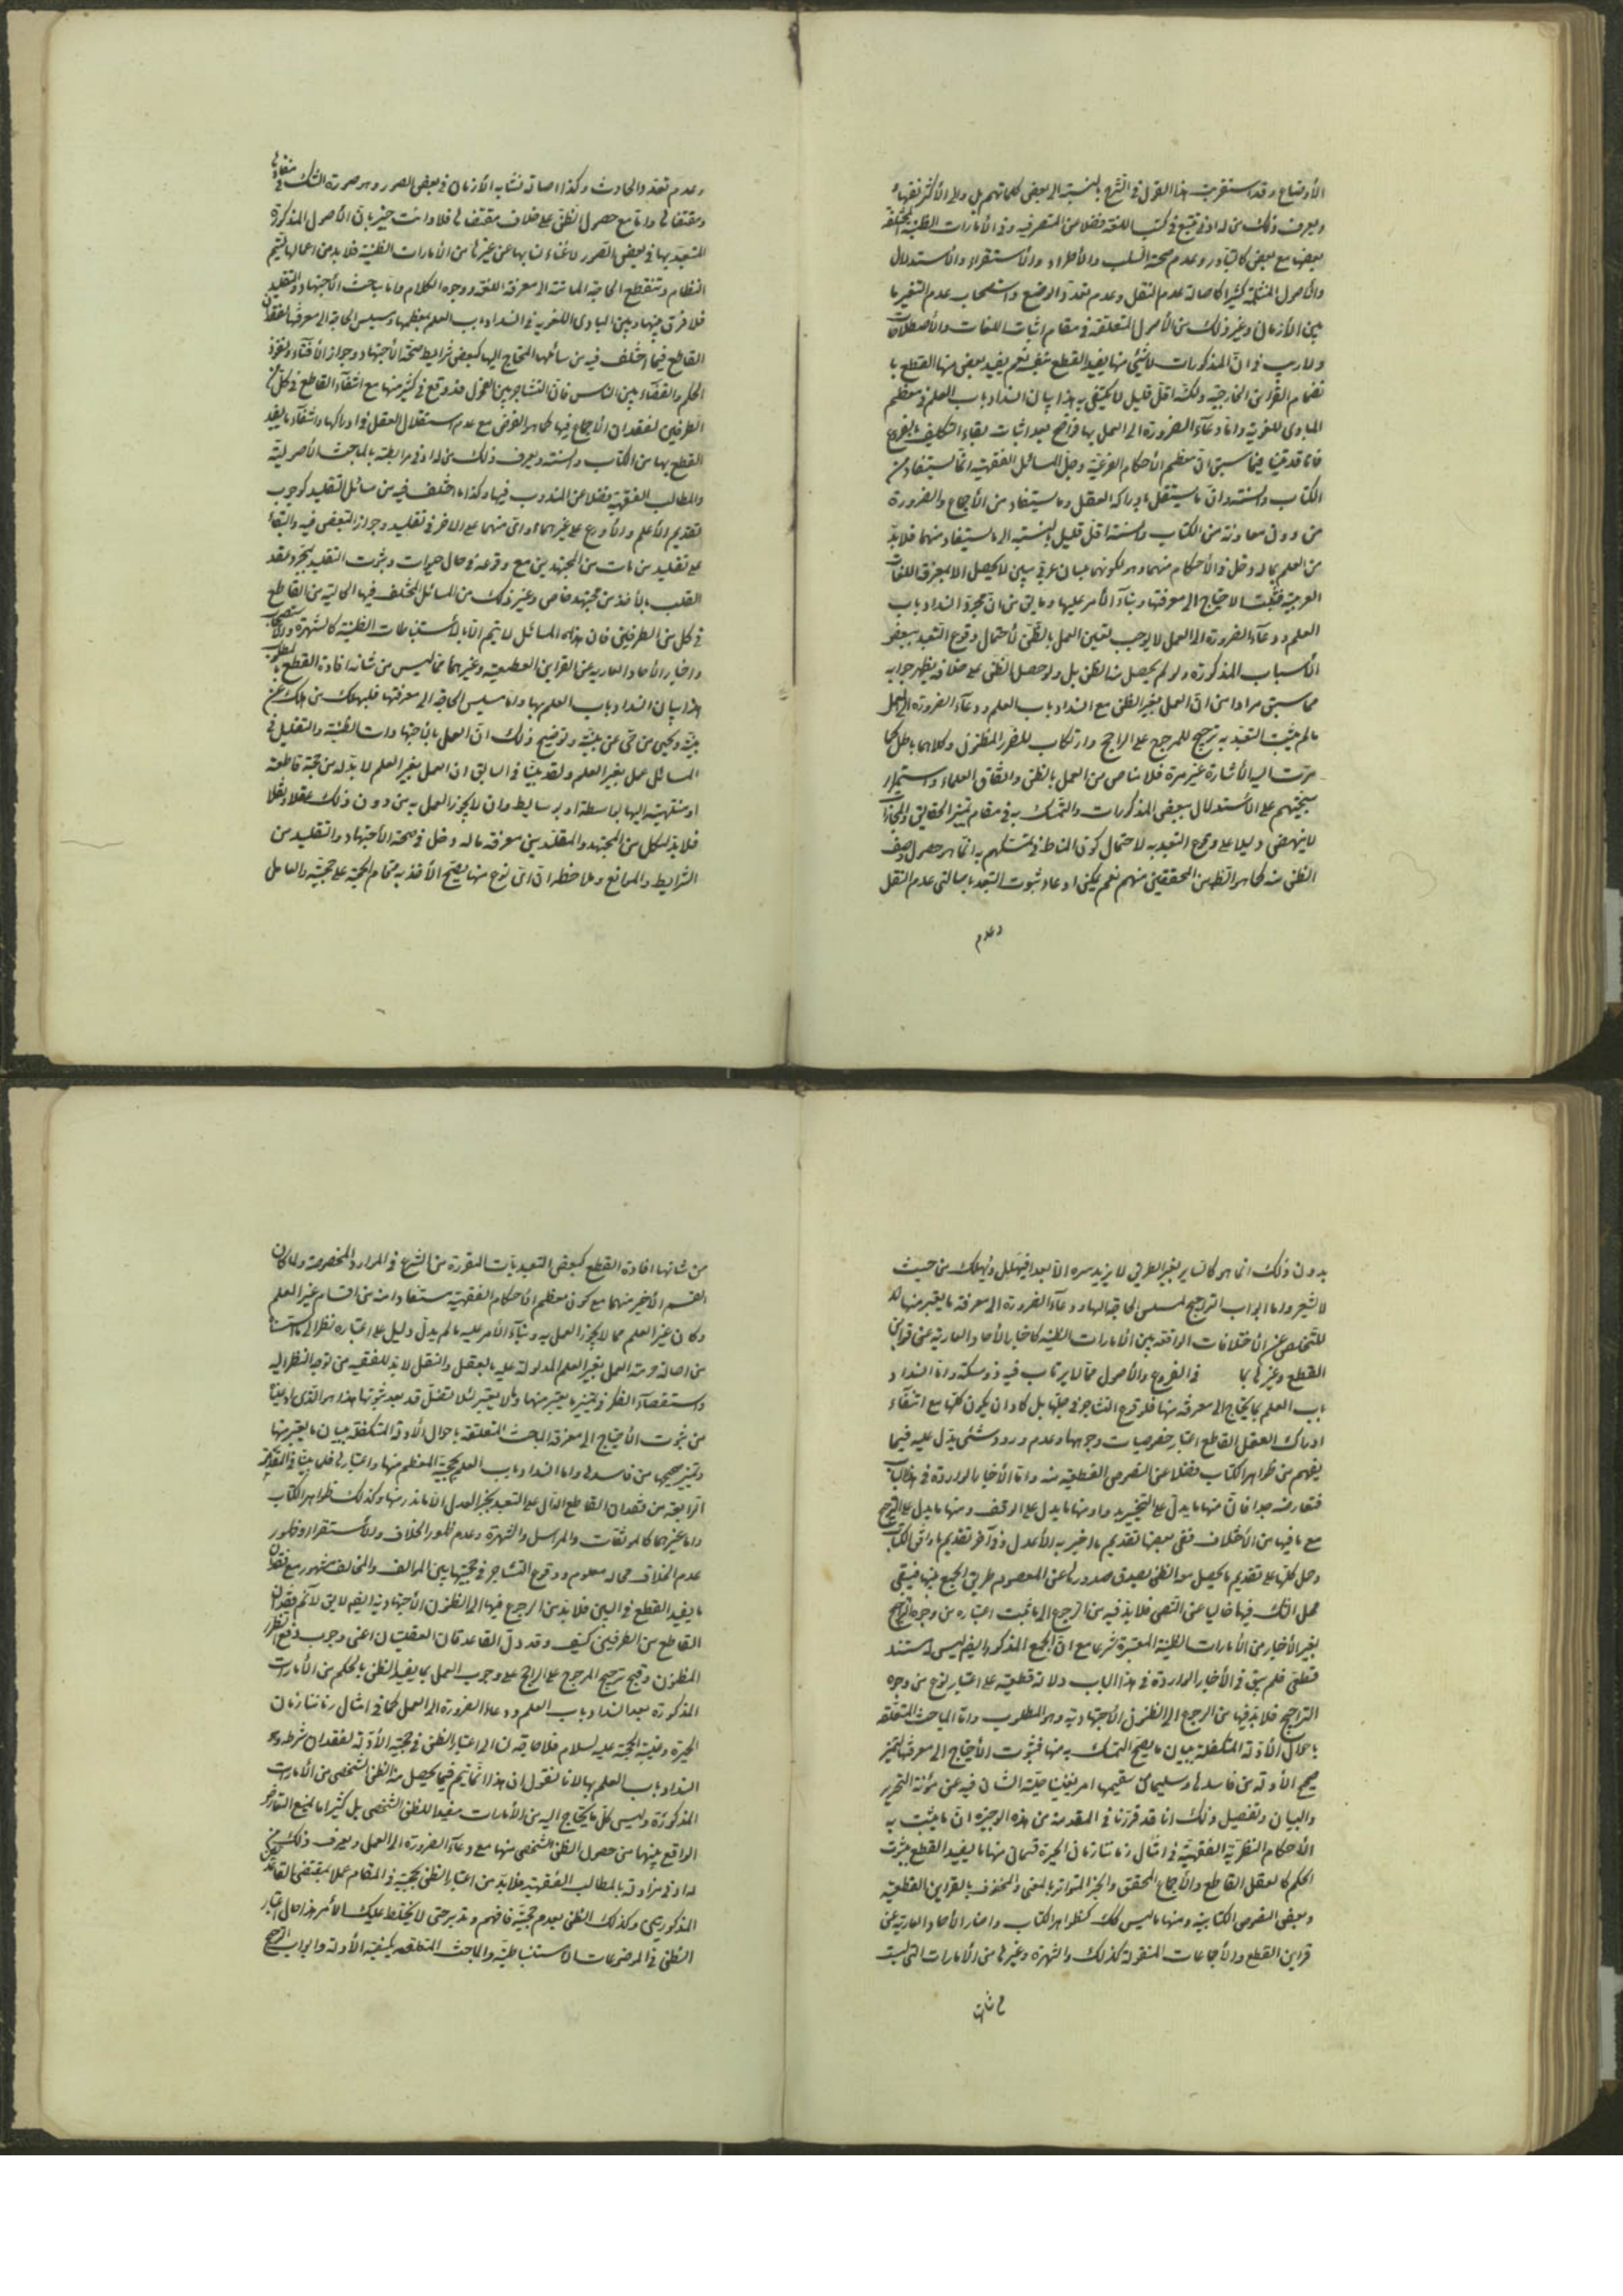 الأوضاع وقد استقربت هذا القول في الشرع بالنسبة الى بعض كلماتهم بل والى الأكثر نفيها
ويعرف ذلك من له ادنى تتبع في كتب اللغة فضلا عن المتصرفيه وفي الأمارات الظنية المختلفة
بعضها مع بعض كالتبادر وعدم صحة السلب والأطراد والأستقراء والأستدلال
والأصول المثبتة كثيرا كاصالة عدم النقل وعدم تعدد الوضع واستصحاب عدم التغير ما
بين الأزمان وغير ذلك من الأصول المتعلقة في مقام اثبات اللغات والأصطلاحات
ولا ريب في ان المذكورات لا شئ منها يفيد القطع بنفسه نعم يفيد بعض منها القطع با
نضمام القراين الخارجية ولكنه اقل قليل لا يكتفى به هذا بيان انسداد باب العلم في معظم
المبادى اللغوية واما دعآء الضرورة الى العمل بها فواضح بعد اثبات بقاء التكليف بالفروع
فانا قد بينا فيما سبق ان معظم الأحكام الفرعية وجل المسائل الفقهية انما يستفاد من
الكتاب والسنة وان ما يستقل بادراكه العقل وما يستفاد من الأجماع والضرورة
من دون معاونة من الكتاب والسنة اقل قليل بالنسبة الى ما يستفاد منهما فلا بد
من العلم بما له دخل في الأحكام منهما وهو لكونهما بلسان عربي مبين لا يحصل الا بمعرفة اللغات
العربية فثبت الاحتياج الى معرفتها وبناء الأمر عليها وما يق من ان مجرد انسداد باب
العلم ودعآء الضرورة الى العمل لا يوجب تعين العمل بالظن لأحتمال وقوع التعبد ببعض
الأسباب المذكورة ولو لم يحصل منه الظن بل ولو حصل الظن على خلافه يظهر جوابه
مما سبق مرارا من ان العمل بغير الظن مع انسداد باب العلم ودعآء الضرورة الى العمل
ما لم يثبت التعبد به ترجيح للمرجوح على الراجح وارتكاب للضرر المظنون وكلاهما باطل كما
مرت اليه الأشارة غير مرة فلا مناص من العمل بالظن واتفاق العلماء واستمرار
سجيتهم على الأستدلال ببعض المذكورات والتمسك به في مقام تميز الحقايق والمجازات
لا ينهض دليلا على وقوع التعبد به لاحتمال كون المناط في تمسكهم به انما هو حصول وصف
الظن منه كما هو الظ من المحققين منهم نعم يمكن ادعاء ثبوت التعبد باصالتي عدم النقل
وعدم
وعدم تعدد الحادث وكذا اصالة تشابه الأزمان في بعض الصور وهو صورة الشك في
مفادها
ومقتضاها واما مع حصول الظن على خلاف مقتضاها فلا وانت خبير بان الأصول المذكورة
المتعبد بها في بعض الصور لا غناء لنا بها عن غيرها من الأمارات الظنية فلا بد من اعمالها ليتم
النظام وتنقطع الحاجة الماسة الى معرفة اللغة ووجوه الكلام واما مباحث الأجتهاد والتقليد
فلا فرق بينها وبين المبادى اللغوية في انسداد باب العلم بمعظمها ومسيس الحاجة الى معرفتها لفقدان
القاطع فيما اختلف فيه من مسائلهما المحتاج اليها كبعض شرايط صحة الأجتهاد وجواز الأفتاء ونفوذ
الحكم والقضآء بين الناس فان التشاجر بين الفحول قد وقع في كثير منها مع انتفآء القاطع في كل من
الطرفين لفقدان الأجماع فيها كما هو الفرض مع عدم استقلال العقل في ادراكها وانتفآء ما يفيد
القطع بها من الكتاب والسنة ويعرف ذلك من له ادنى رابطة بالمباحث الأصولية
والمطالب الفقهية فضلا عن المندوب فيها وكذا ما اختلف فيه من مسائل التقليد كوجوب
تقديم الأعلم والأورع على غيرهما واى منهما على الاخر في تقليد وجواز التبعض فيه والبقاء
على تقليد من مات من المجتهدين مع وقوعه في حال حيوته وثبوت التقليد بمجرد عقد
القلب بالأخذ من مجتهد خاص وغير ذلك من المسائل المختلف فيها الخالية من القاطع
في كل من الطرفين فان هذه المسائل لا يتم الا بالأستنباطات الظنية كالشهرة والأستصحاب
واخبار الأحاد العارية عن القراين القطعية وغيرهما مما ليس من شانه افادة القطع بالمطلوب
هذا بيان انسداد باب العلم بها واما مسيس الحاجة الى معرفتها فليهلك من هلك عن
بينة ويحيى من حى عن بينة وتوضيح ذلك ان العمل بالأجتهادات الظنية والتقليد في
المسائل عمل بغير العلم ولقد بينا في السابق ان العمل بغير العلم لا بد له من حجة قاطعة
او منتهية اليها بواسطة او بوسايط وان لا يجوز العمل به من دون ذلك عقلا ونقلا
فلا بد لكل من المجتهد والمقلد من معرفة ما له دخل في صحة الأجتهاد والتقليد من
الشرايط والموانع وملاحظة ان اى نوع منها يصح الأخذ به بقيام الحجة على حجيته والعامل
بدون ذلك انما هو كالساير بغير الطريق لا يزيد سيره الا بعدا فيهلك ويهلك من حيث
لا يشعر واما ابواب التراجيح لمسيس الحاجة اليها ودعآء الضرورة الى معرفة ما يعتبر منها
للتخلص عن الأختلافات الواقعة بين الأمارات الظنية كاخبار الأحاد العارية عن قراين
القطع وغيرها بما في الفروع والأصول مما لا يرتاب فيه ذو مسكة واما انسداد
باب العلم بما يحتاج الى معرفته منها فلوقوع التشاجر في جلها بل كاد ان يكون كلها مع انتفآء
ادراك العقل القاطع اعتبار خصوصيات وجوهها وعدم ورود شئ يدل عليه فيما
يفهم من ظواهر الكتاب فضلا عن النصوص القطعية منه واما الأخبار الواردة في هذا الباب
فتعارضه جدا فان منها ما يدل على التخيير بدوا ومنها ما يدل على الوقف ومنها ما يدل على الترجيح
مع ما فيها من الأختلاف ففى بعضها تقديم ما اخبر به الأعدل وفي آخر تقديم ما وافق الكتاب
وحمل كلها على تقديم ما يحصل به الظن بصدق صدورها عن المعصوم طريق الجمع بينها فيبقى
محل الشك فيها خاليا عن النص فلا بد فيه من الرجوع الى ما ثبت اعتباره من وجوه التراجيح
بغير الأخبار من الأمارات الظنية المعتبرة شرعا مع ان الجمع المذكور ايض ليس له مستند
قطعى فلم يبق في الأخبار الواردة في هذا الباب دلالة قطعية على اعتبار نوع من وجوه
التراجيح فلا بد فيها من الرجوع الى الظنون الأجتهادية وهو المطلوب واما المباحث المتعلقة
باحوال الأدلة المتكفلة ببيان ما يصح التمسك به منها فثبوت الأحتياج الى معرفتها لتميز
صحيح الأدلة من فاسدها وسليمها من سقيمها امر يغنينا جلية الشان فيه عن مؤنة التحرير
والبيان وتفصيل ذلك انا قد قررنا في المقدمة من هذه الوجيزة ان ما يثبت به
الأحكام النظرية الفقهية في امثال زماننا زمان الحيرة قسمان منها ما يفيد القطع بثبوت
الحكم كالعقل القاطع والأجماع المحقق والخبر المتواتر بالمعنى والمحفوف بالقراين القطعية
وبعض النصوص الكتابية ومنها ما ليس كك كظواهر الكتاب واخبار الأحاد العارية عن
قراين القطع والأجماعات المنقولة كذلك والشهرة وغيرها من الأمارات التي ليست
من شانها
من شانها افادة القطع كبعض التعبديات المقررة من الشرع في الموارد المخصوصة ولما كان
القسم الأخير منهما مع كون معظم الأحكام الفقهية مستفادا منه من اقسام غير العلم
وكان غير العلم مما لا يجوز العمل به وبناء الأمر عليه ما لم يدل دليل على اعتباره نظرا الى ما اسسناه
من اصالة حرمة العمل بغير العلم المدلولة عليه بالعقل والنقل لا بد للفقيه من توجه النظر اليه
واستقصآء الفكر في تميز ما يعتبر منها وما لا يعتبر لئلا تضل قدم بعد ثبوتها هذا هو الذى ادعينا
من ثبوت الأحتياج الى معرفة المباحث المتعلقة باحوال الأدلة المتكفلة ببيان ما يعتبر منها
وتميز صحيحها من فاسدها واما انسداد باب العلم بحجية المعظم منها واعتبارها فلما بينا في المقدمة
الرابعة من فقدان القاطع الدال على التعبد بخبر العدل الا ما ندر منها وكذلك ظواهر الكتاب
واما غيرهما كالموثقات والمراسل والشهرة وعدم ظهور الخلاف والأستقرار وظهور
عدم الخلاف فحاله معلوم ووقوع التشاجر في حجيتها بين الموالف والمخالف مشهور مع فقدان
ما يفيد القطع في البين فلا بد من الرجوع فيها الى الظنون الأجتهادية ايض لا يق لا نم فقدان
القاطع من الطرفين كيف وقد دل القاعدتان العقليتان اعنى وجوب دفع الضرر
المظنون وقبح ترجيح المرجوح على الراجح على وجوب العمل بما يفيد الظن بالحكم من الأمارات
المذكورة بعد انسداد باب العلم ودعاء الضرورة الى العمل كما في امثال زماننا زمان
الحيرة وغيبة الحجة عليه السلام فلا حاجة لنا الى اعتبار الظن في حجية الأدلة لفقدان شرطه وهو
انسداد باب العلم بها لانا نقول ان هذا انما يتم فيما يحصل منه الظن الشخصى من الأمارات
المذكورة وليس كل ما يحتاج اليه من الأمارات مفيدا للظن الشخصى بل كثيرا ما يمنع التعارض
الواقع بينها من حصول الظن الشخصى منها مع دعآء الضرورة الى العمل ويعرف ذلك من
له ادنى مزاولة بالمطالب الفقهية فلا بد من اعتبار الظن بحجيته في المقام عملا بمقتضى القاعدتين
المذكورتين وكذلك الظن بعدم حجيته فافهم وتدبر حتى لا يختلط عليك الأمر هذا حال اعتبار
الظن في الموضوعات الاستنباطية والمباحث المتعلقة بكيفية الأدلة وابواب التراجيح